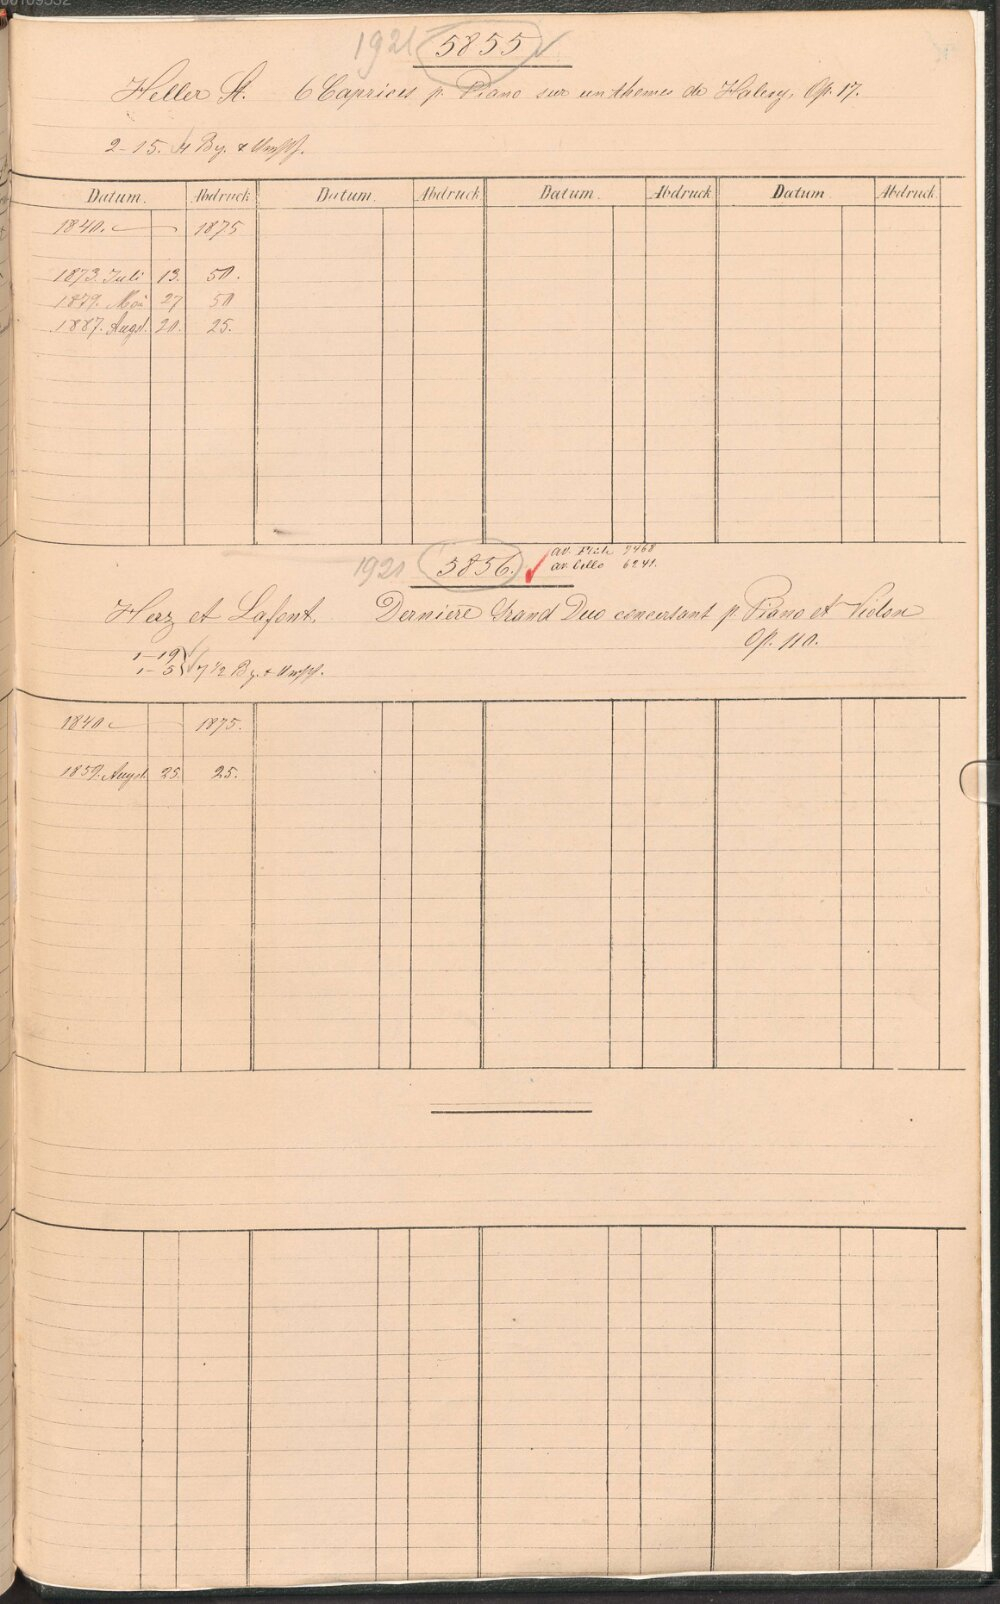 1921 5855
Heller St. 6 Caprices p. Piano sur un themes de Halevy, Op. 17.
2-15. 4 Bg. & Umschl.
Datum. Abdruck Datum. Abdruck Datum. Abdruck Datum. Abdruck
1840. 1875
1873. Juli 13. 50.
1879. Mai 27 50
1887. Augst. 20. 25.
av. Flöte 7468
1921 5856. av. Cello 6241.
Herz et Lafont. Derniere Grand Duo concertant p. Piano et Violon
Op. 110.
1-19
1-5 7 1/2 Bg. & Umschl.
1840. 1875.
1859. Augst. 25. 25.